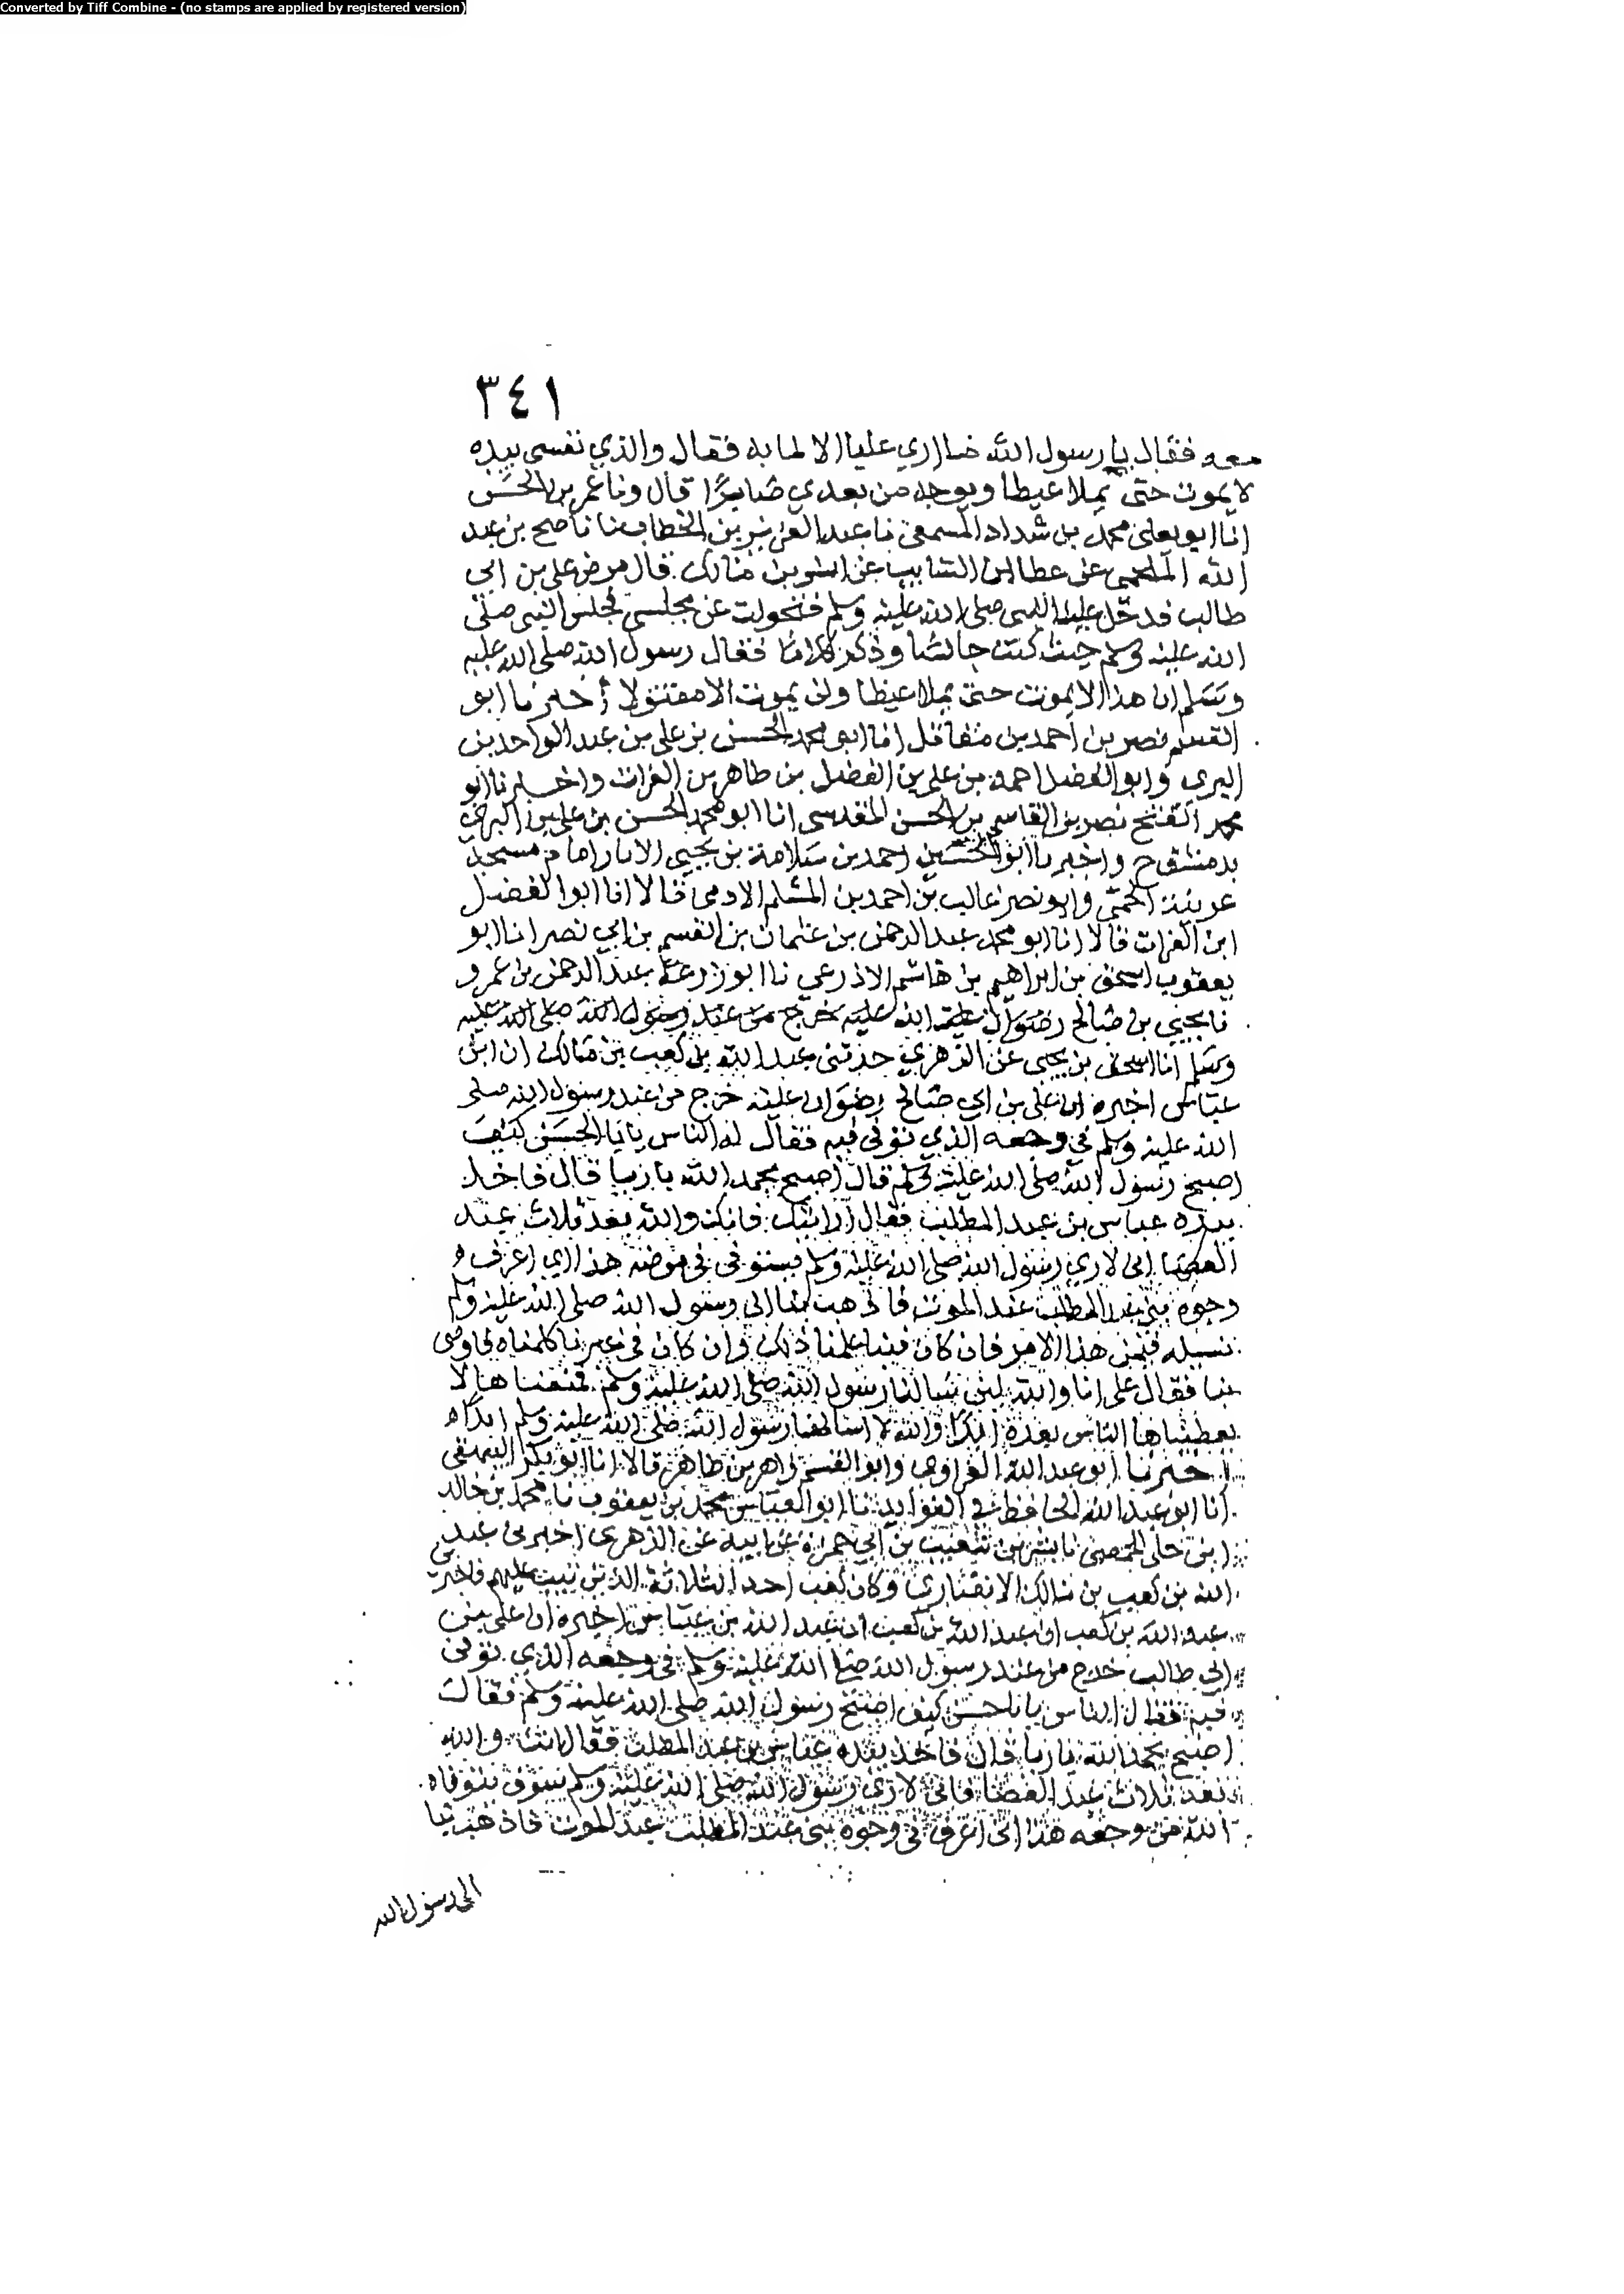 Converted by Tiff Combine - (no stamps are applied by registered version)
٣٤١
معه فقال يا رسول الله ما اري عليا الا لما به فقال والذي نفسي بيده
لا يموت حتى يملا غيظا ويوجد من بعدي صابرا قال ونا عمر بن الحسن
انا ابو يعلى محمد بن شداد المسمعي نا عبد العزيز بن الخطاب نا ناصح بن عبد
الله المحلمي عن عطا بن السايب عن انس بن مالك قال مرض علي بن ابي
طالب فدخل عليه النبي صلى الله عليه وسلم فتحولت عن مجلسي فجلس النبي صلى
الله عليه وسلم حيث كنت جالسا وذكر كلاما فقال رسول الله صلى الله عليه
وسلم ان هذا لا يموت حتى يملا غيظا ولن يموت الا مقتولا أخبرنا ابو
القسم نصر بن أحمد بن مقاتل انا ابو محمد الحسن بن علي بن عبد الواحد بن
البري وابو الفضل احمد بن علي بن الفضل بن طاهر بن الفرات واخبرنا ابو
محمد الفتح نصر بن القاسم بن الحسن المقدسي انا ابو محمد الحسن بن علي بن البري
بدمشق ح واخبرنا ابو الحسين احمد بن سلامة بن يحيى الابار امام مسجد
عوينة الحمى وابو نصر غالب بن احمد بن المسلم الادمي قالا انا ابو الفضل
ابن الفرات قالا انا ابو محمد عبد الرحمن بن عثمان بن القسم بن ابي نصر انا ابو
يعقوب اسحق بن ابراهيم بن هاشم الاذرعي نا ابو زرعة عبد الرحمن بن عمرو
نا يحيى بن صالح رضوان الله عليه خرج من عند رسول الله صلى الله عليه
وسلم انا اسحق بن يحيى عن الزهري حدثني عبد الله بن كعب بن مالك ان ابن
عباس اخبره ان علي بن ابي صالح رضوان عليه خرج من عند رسول الله صلى
الله عليه وسلم في وجعه الذي توفي فيه فقال له الناس يا ابا الحسن كيف
اصبح رسول الله صلى الله عليه وسلم قال اصبح بحمد الله بارئا قال فاخذ
بيده عباس بن عبد المطلب فقال ارايتك فانك والله بعد ثلاث عبد
العصا اني لاري رسول الله صلى الله عليه وسلم فيتوفى في مرضه هذا اني اعرف
وجوه بني عبد المطلب عند الموت فاذهب بنا الى رسول الله صلى الله عليه وسلم
نسله فيمن هذا الامر فان كان فينا علمنا ذلك وان كان في غيرنا كلمناه فاوصى
بنا فقال علي انا والله لين سالنا رسول الله صلى الله عليه وسلم فمنعناها لا
يعطيناها الناس بعده ابدا والله لا اسالها رسول الله صلى الله عليه وسلم ابدا
اخبرنا ابو عبد الله الفراوي وابو القسم زاهر بن طاهر قالا انا ابو بكر البيهقي
انا ابو عبد الله الحافظ في الفوايد نا ابو العباس محمد بن يعقوب نا محمد بن خالد
ابن خلي الحمصي نا بشر بن شعيب بن ابي حمزة عن ابيه عن الزهري اخبرني عبد
الله بن كعب بن مالك الانصاري وكان كعب احد الثلاثة الذين تيب عليهم فاخبرني
عبد الله بن كعب ان عبد الله بن كعب ان عبد الله بن عباس اخبره ان علي بن
ابي طالب خرج من عند رسول الله صلى الله عليه وسلم في وجعه الذي توفي
فيه فقال الناس يا ابا حسن كيف اصبح رسول الله صلى الله عليه وسلم فقال
اصبح بحمد الله بارئا قال فاخذ بيده عباس بن عبد المطلب فقال انت والله
بعد ثلاث عبد العصا فاني لارى رسول الله صلى الله عليه وسلم سوف يتوفاه
الله من وجعه هذا اني اعرف في وجوه بني عبد المطلب عند الموت فاذهب بنا
الى رسول الله